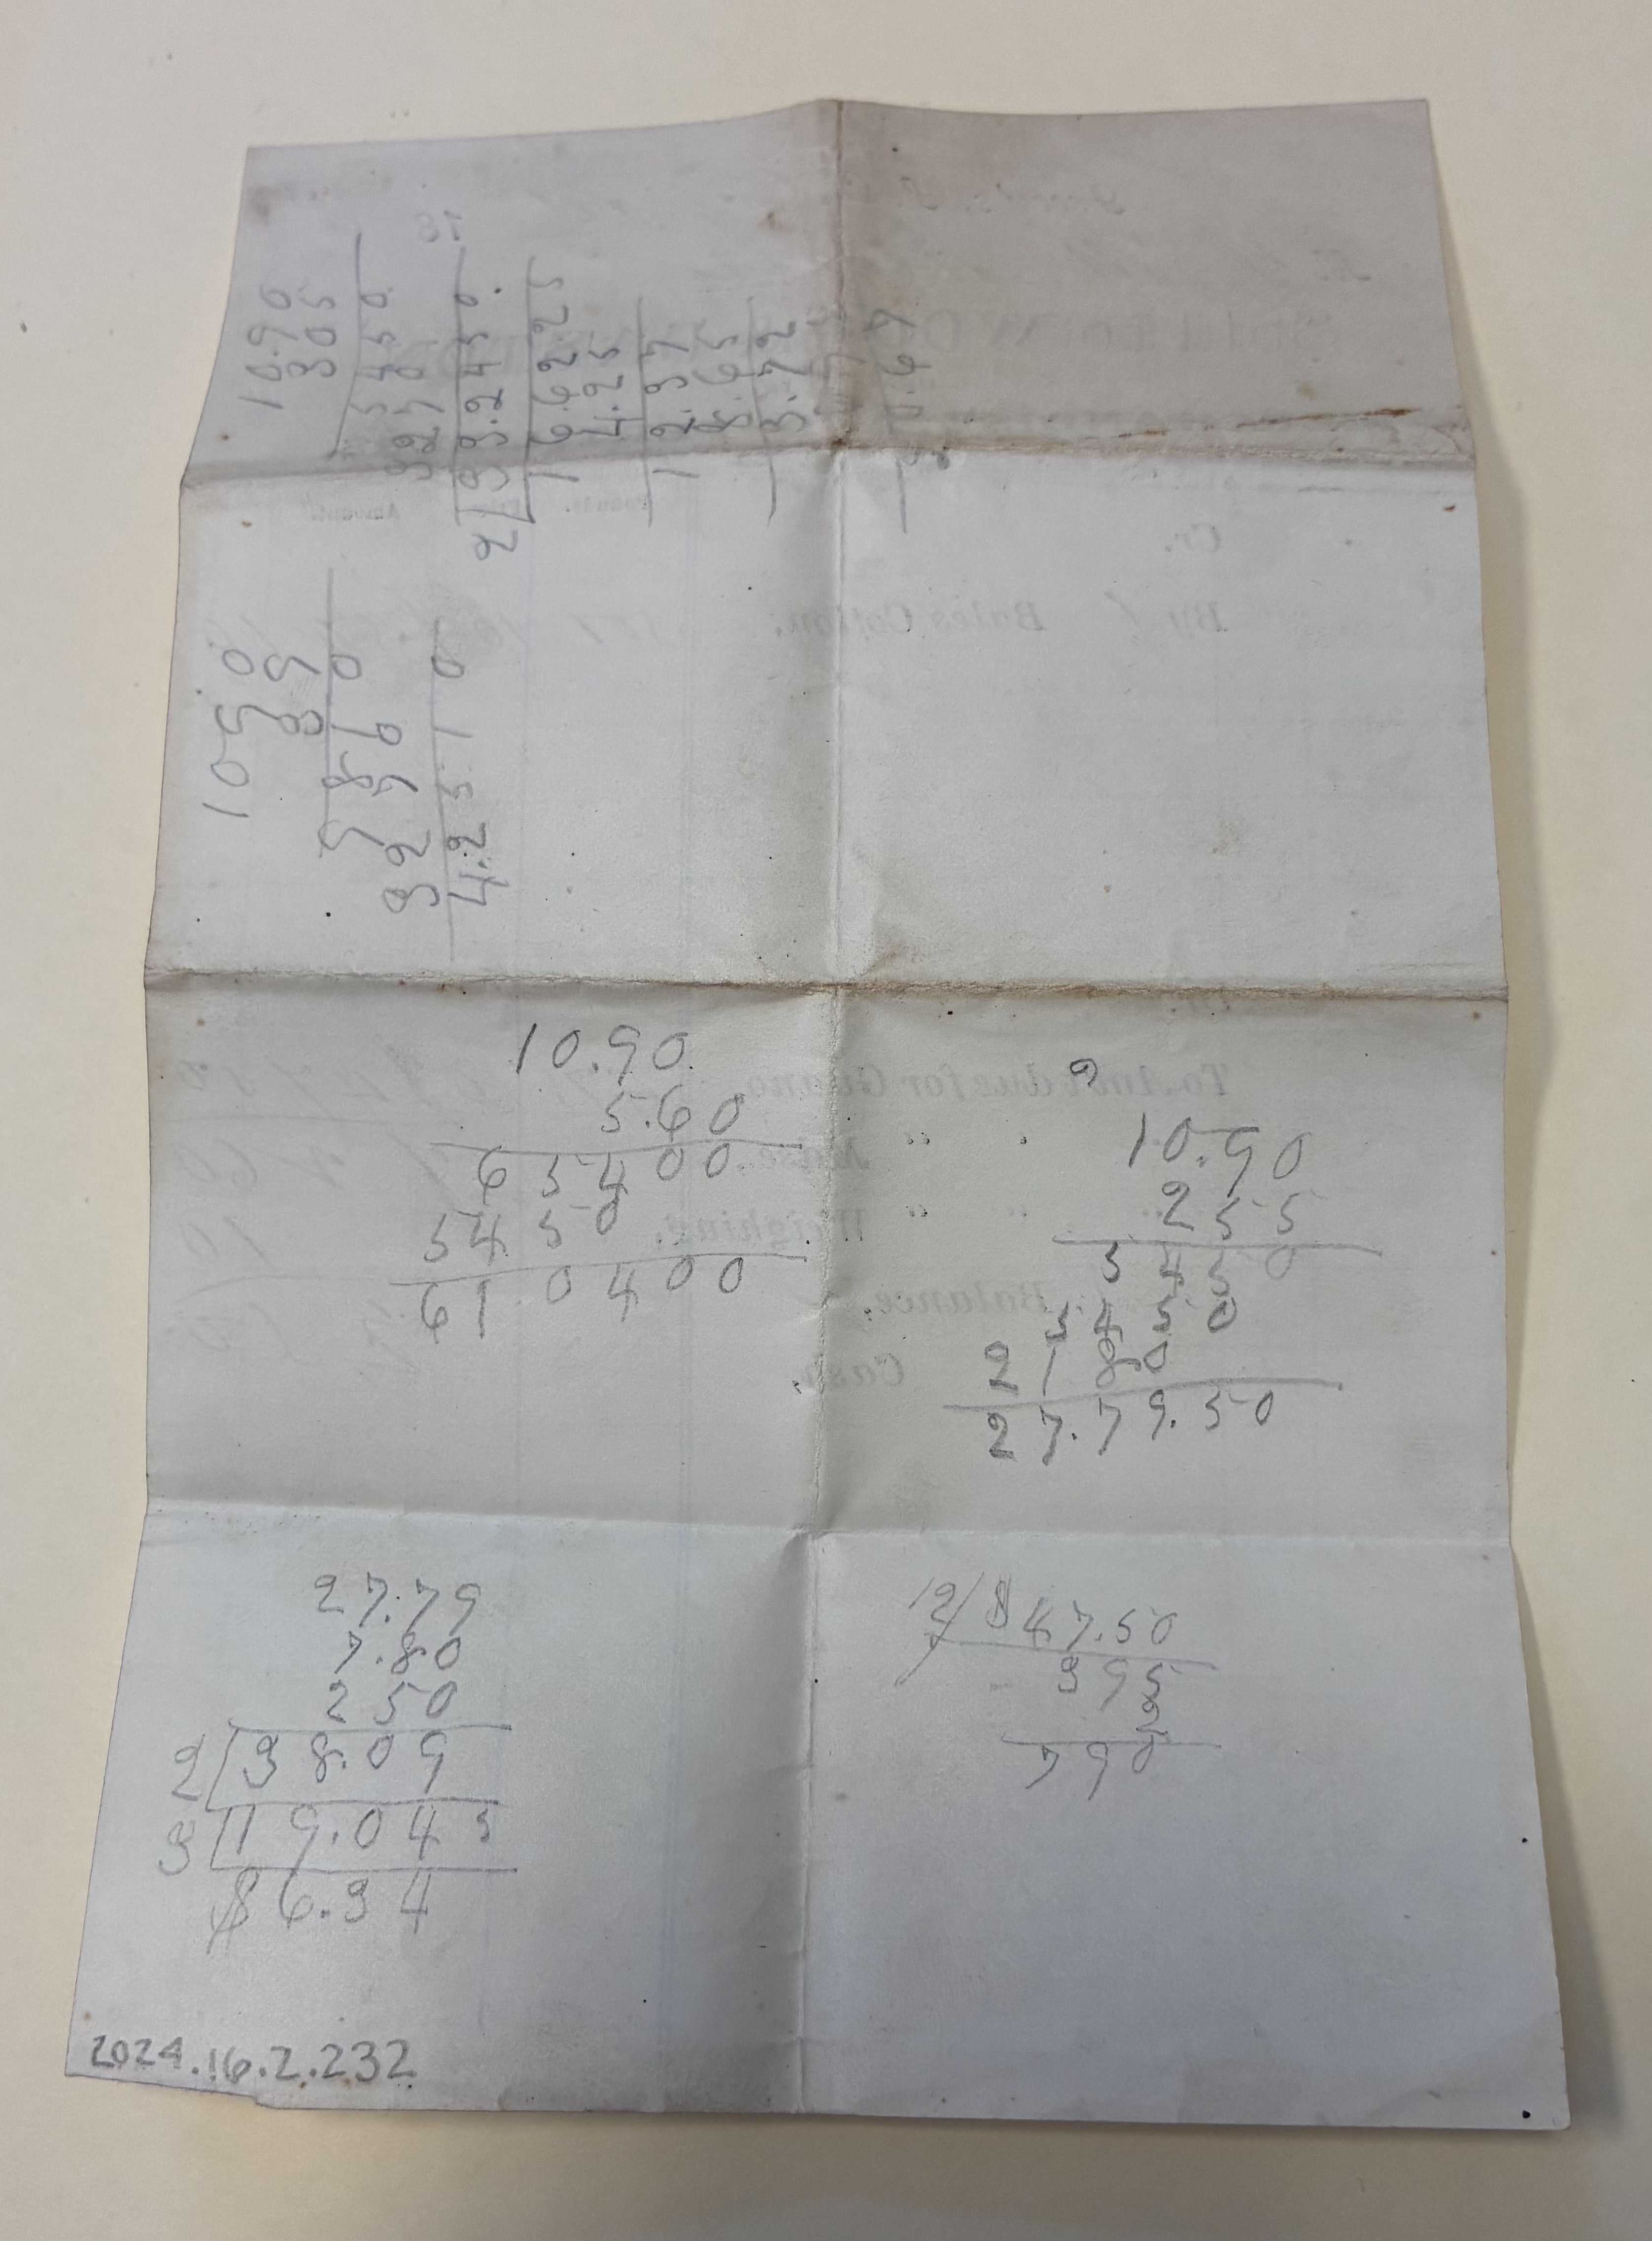 10.90
305
5450
3270
2/33.2450.
16.62.25
4.25
12.37
8.65
3.72
10.90
39
9810
3270
4.2510
10.90
5.60
65400
5450
61.0400
9
10.90
255
5450
5450
2180
27.79.50
27.79
7.80
250
2/38.09
3/19.045
$6.34
12/47.50
395
2
790
Cr.
By 1 Bales Cotton,
To Amt due for Guano,
" " Mdse.
" " Weighing,
Balance,
Cash,
2024.16.2.232